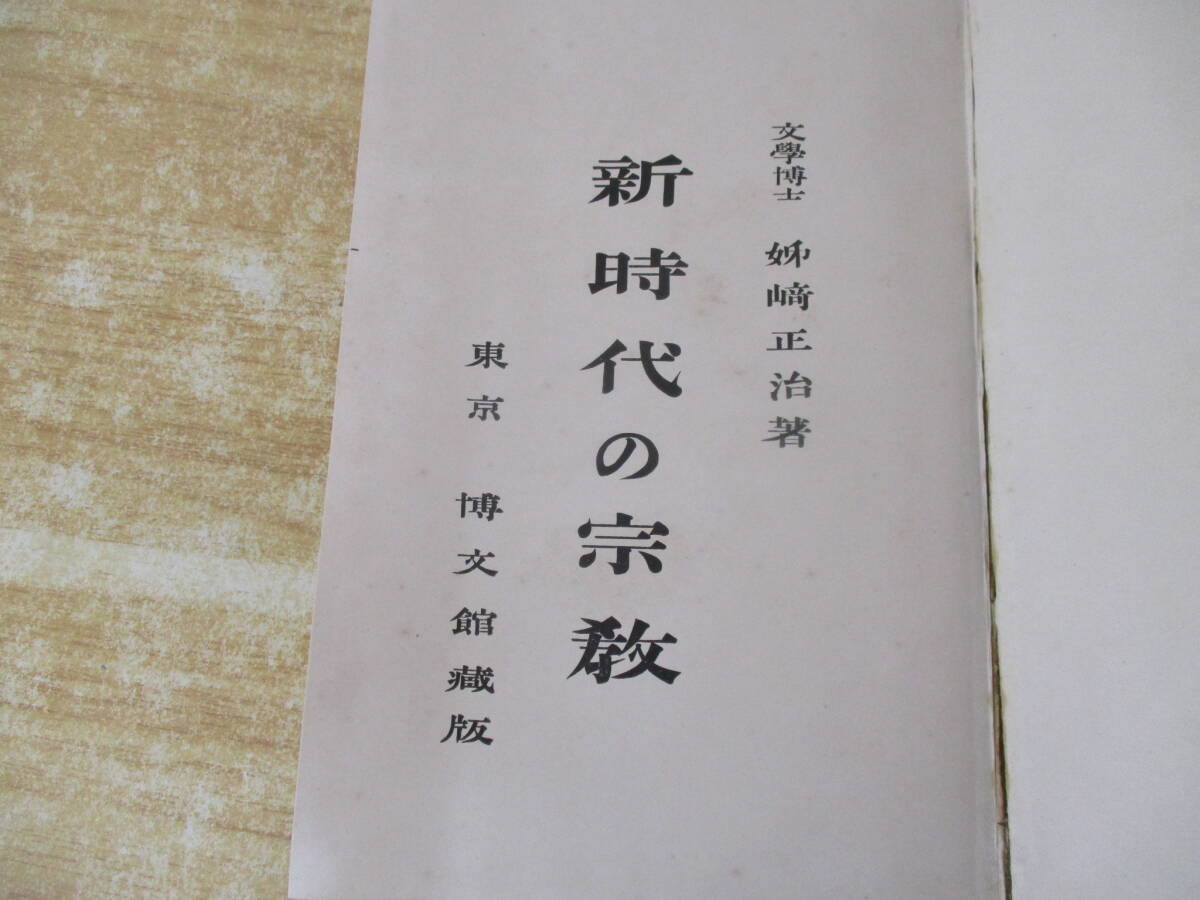 文學博士 姊﨑正治著
新時代の宗教
東京 博文館藏版